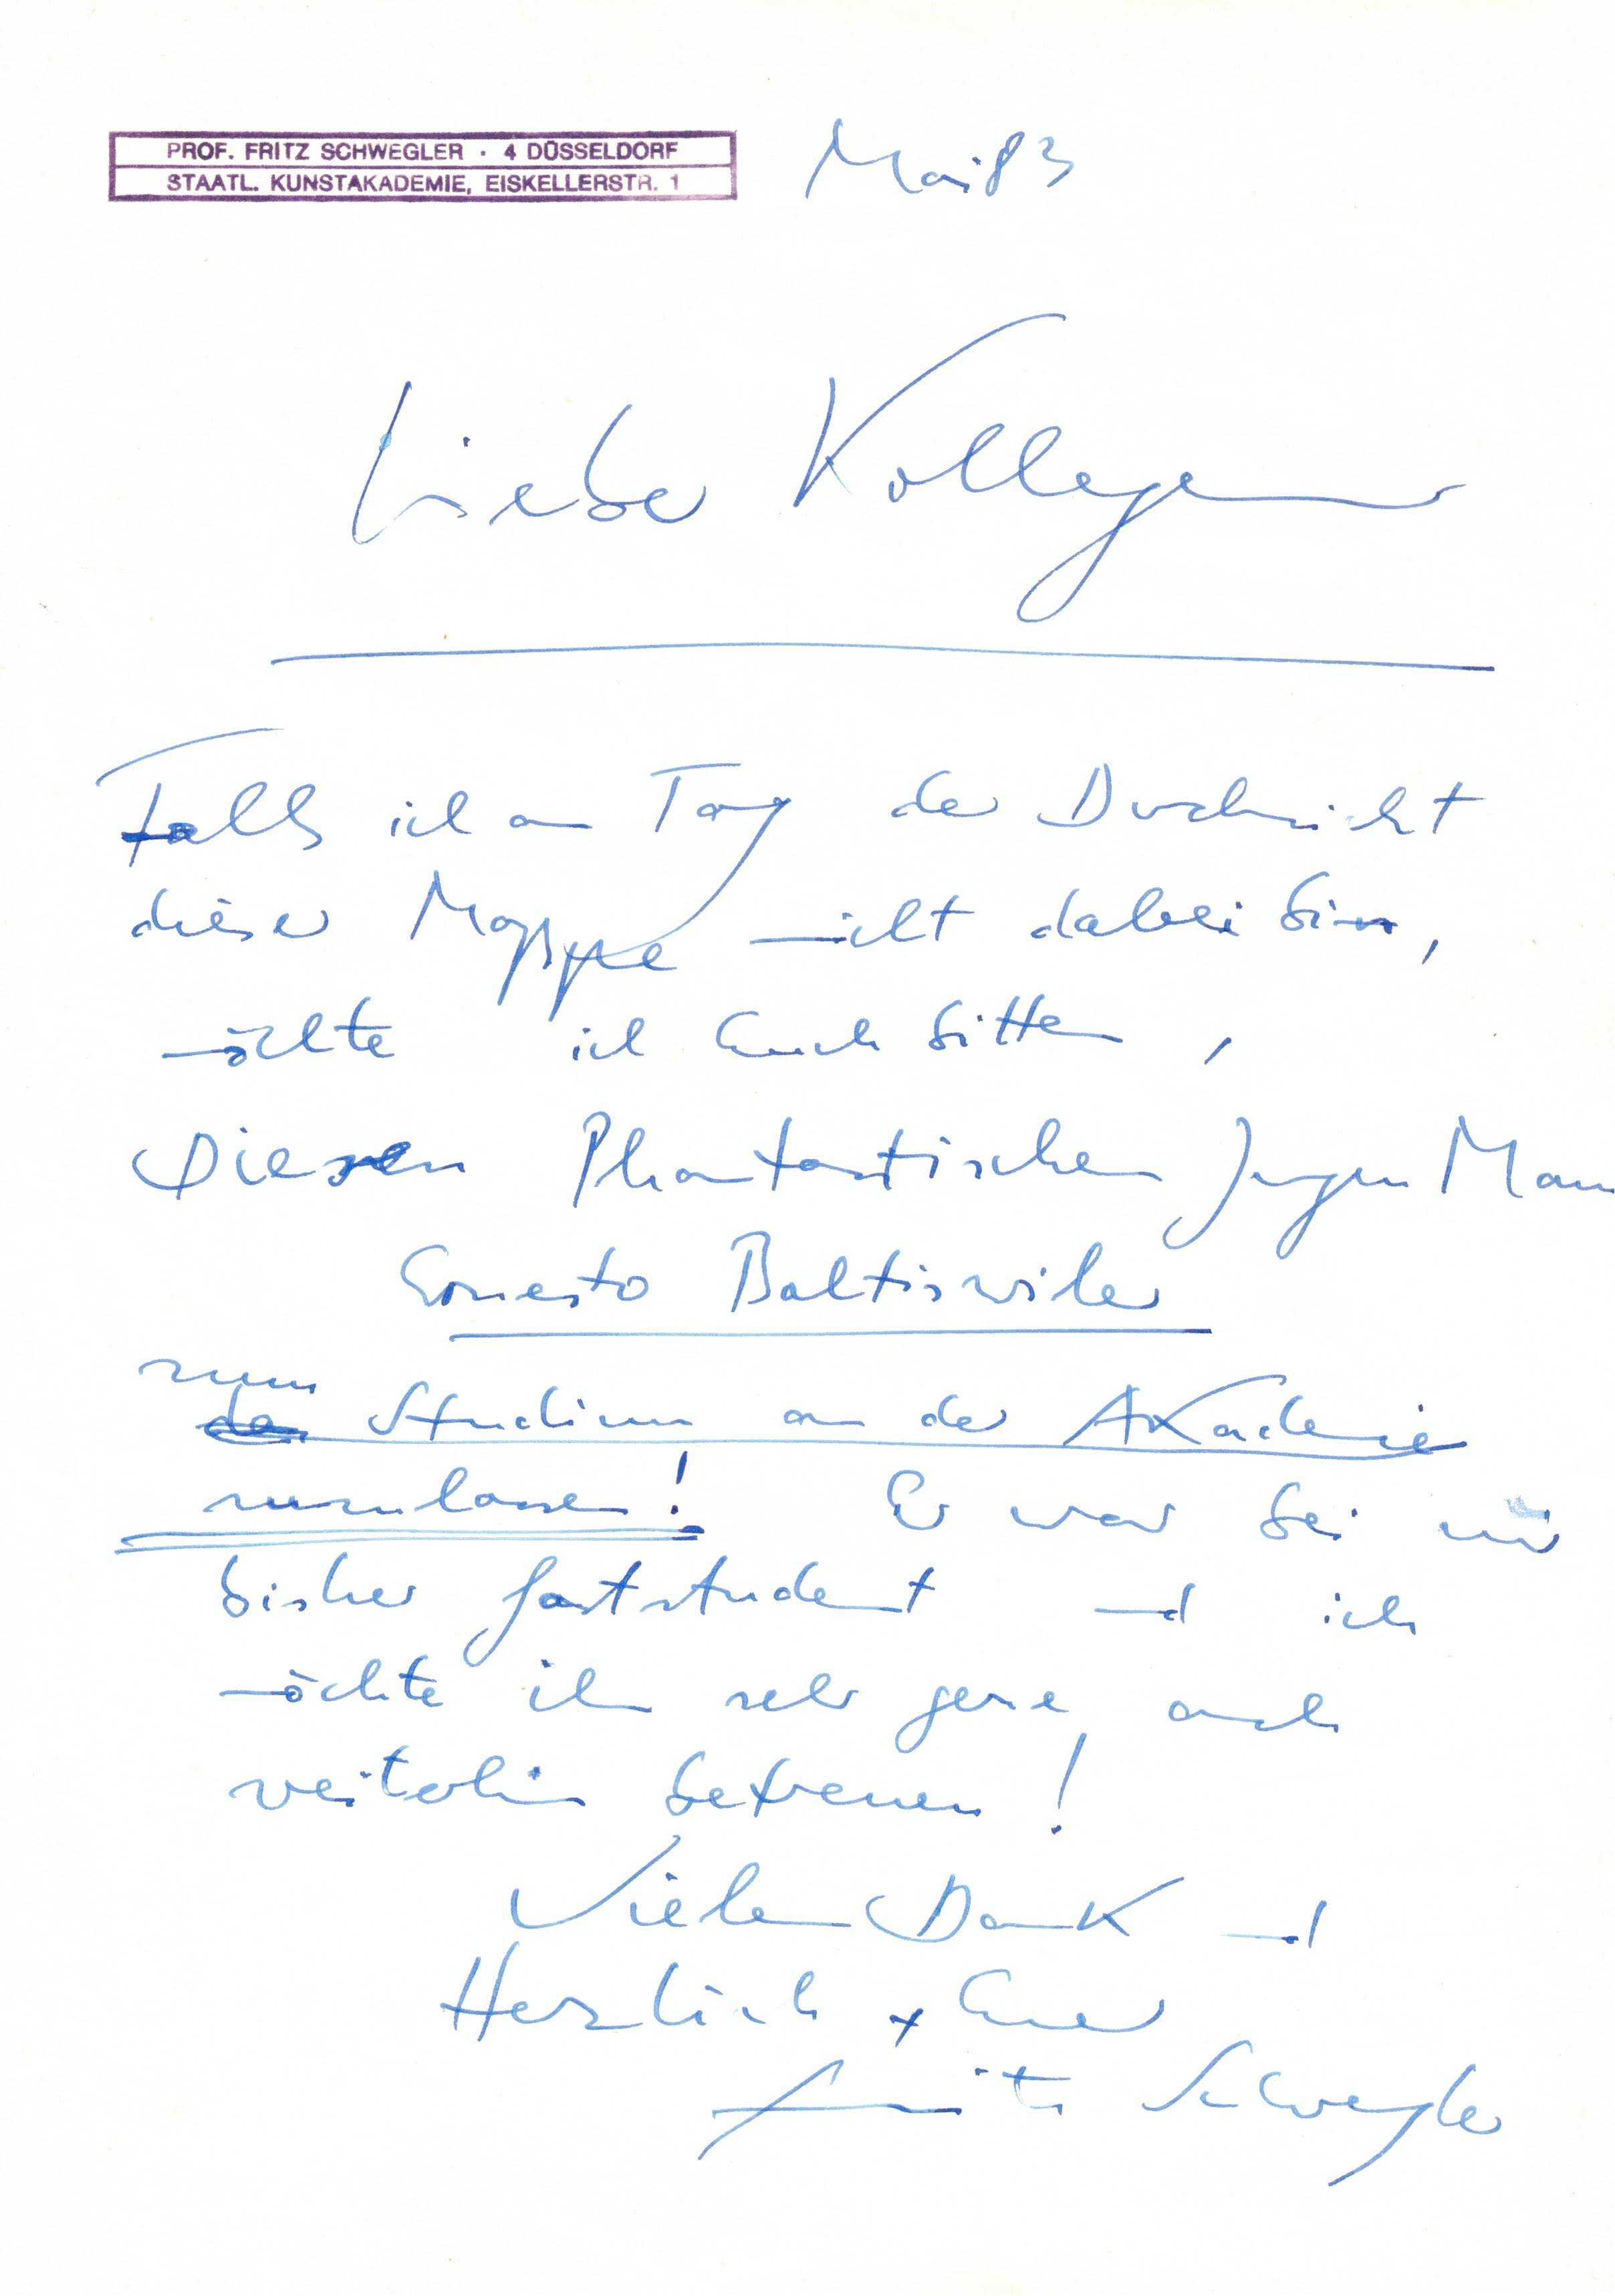 PROF. FRITZ SCHWEGLER · 4 DÜSSELDORF
STAATL. KUNSTAKADEMIE, EISKELLERSTR. 1
Mai 83
Liebe Kollegen
Falls ich am Tag der Durchsicht
dieser Mappe nicht dabei bin,
möchte ich Euch bitten,
Diesen Phantastischen Jungen Mann
Ernesto Baltiswiler
zum
Studium an der Akademie
zuzulassen! Er war bei mir
bisher Gaststudent und ich
möchte ihn sehr gerne auch
weiterhin betreuen!
Vielen Dank und
Herzlich + Euer
Fritz Schwegler